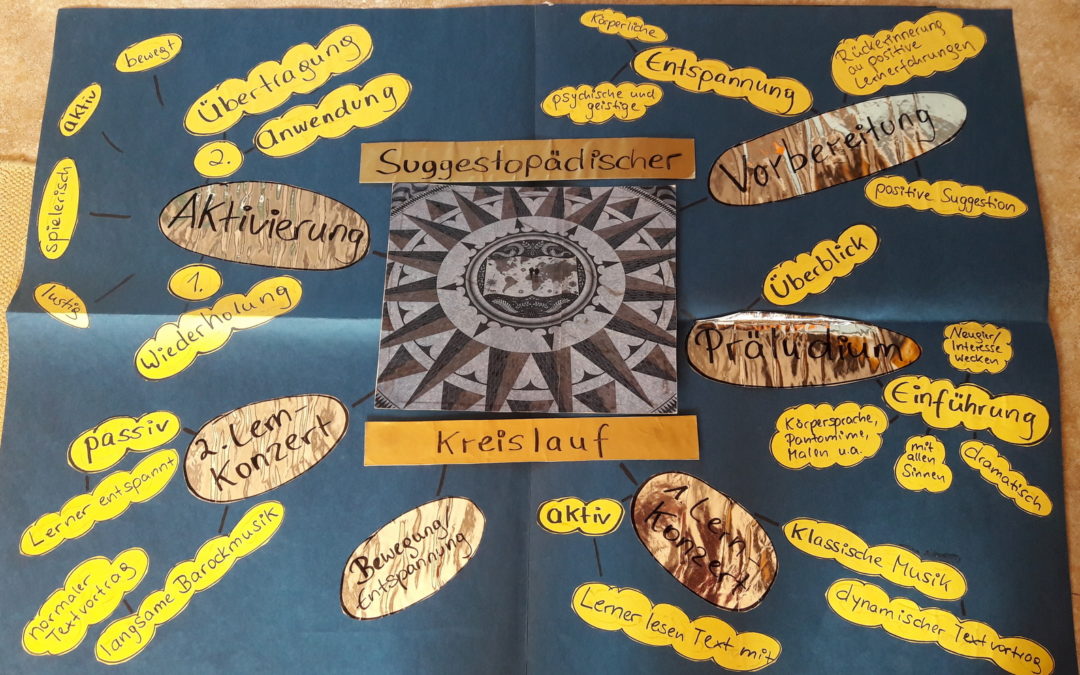 Suggestopädischer
Kreislauf
Vorbereitung
Entspannung
Körperliche
psychische und
geistige
Rückerinnerung
an positive
Lernerfahrungen
positive Suggestion
Präludium
Überblick
Einführung
Neugier/
Interesse
wecken
Körpersprache,
Pantomime,
Malen u.a.
mit
allen
Sinnen
dramatisch
1. Lern
Konzert
aktiv
Lerner lesen Text mit
Klassische Musik
dynamischer Textvortrag
Bewegung/
Entspannung
2. Lern-
Konzert
passiv
Lerner entspannt
normaler
Textvortrag
langsame Barockmusik
Aktivierung
1.
Wiederholung
2.
Übertragung
Anwendung
bewegt
aktiv
spielerisch
lustig